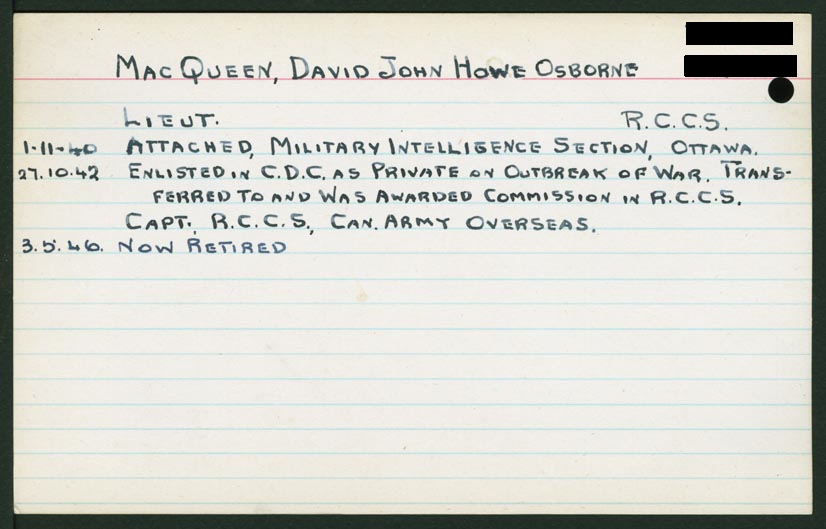 MacQueen, David John Howe Osborne
Lieut. R.C.C.S.
1-11-40 Attached, Military Intelligence Section, Ottawa.
27.10.42 Enlisted in C.D.C. as Private on Outbreak of War. Trans-
ferred to and was awarded Commission in R.C.C.S.
Capt., R.C.C.S., Can. Army Overseas.
3.5.46. Now Retired